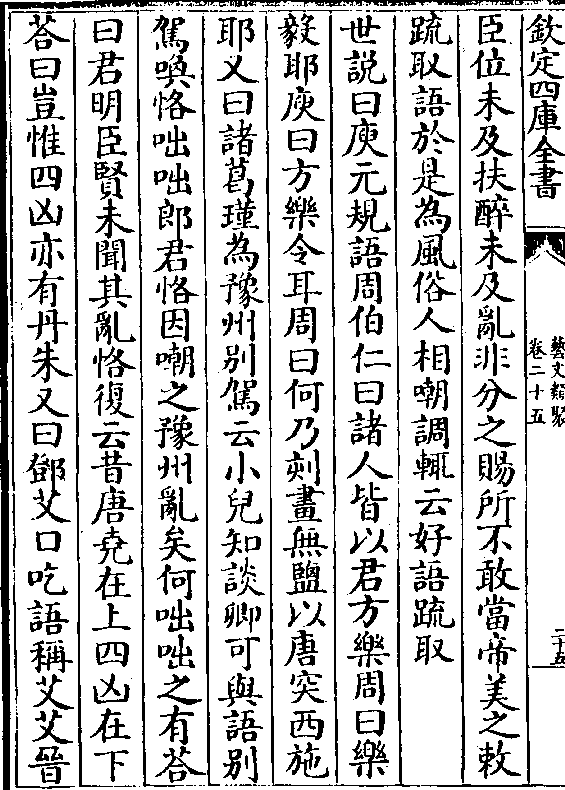 欽定四庫全書
藝文類聚
卷二十五
二十五
臣位未及扶醉未及亂非分之賜所不敢當帝美之敕
疏取語於是為風俗人相嘲調輒云好語疏取
世説曰庾元規語周伯仁曰諸人皆以君方樂周曰樂
毅耶庾曰方樂令耳周曰何乃刻畫無鹽以唐突西施
耶又曰諸葛瑾為豫州别駕云小兒知談卿可與語别
駕喚恪咄咄郎君恪因嘲之豫州亂矣何咄咄之有荅
曰君明臣賢未聞其亂恪復云昔唐堯在上四凶在下
荅曰豈惟四凶亦有丹朱又曰鄧艾口吃語稱艾艾晉